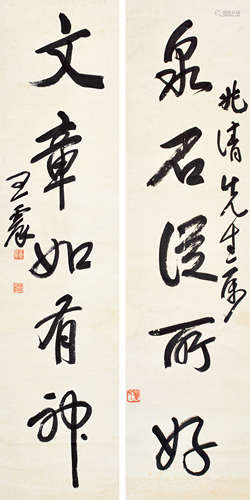 泉石從所好
兆清先生屬
文章如有神
王震